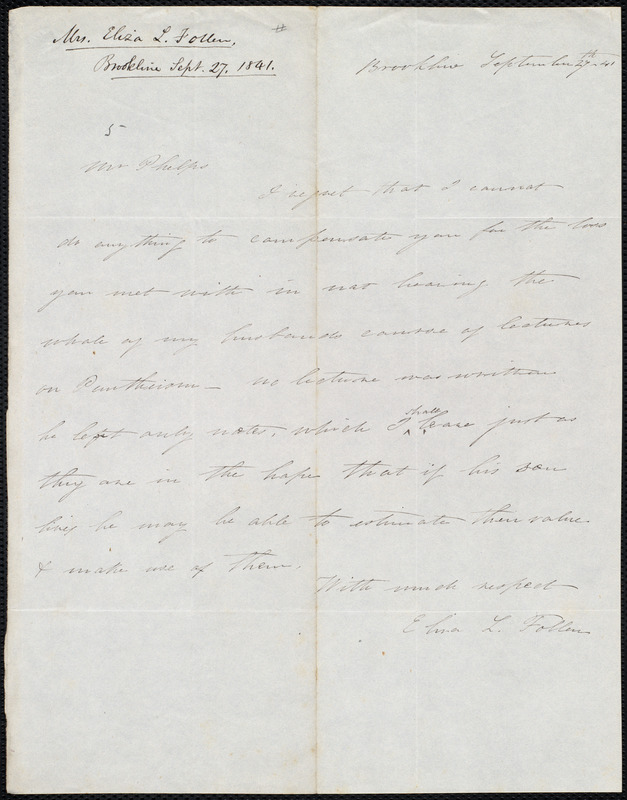 Mrs. Eliza L. Follen,
Brookline Sept. 27. 1841.
#
Brookline September 27th 41
5
Mr Phelps
I regret that I cannot
do anything to compensate you for the loss
you met with in not hearing the
whole of my husbands course of lectures
on Pantheism — no lecture was written
he left only notes, which I shall leave just as
they are in the hope that if his son
lives he may be able to estimate their value
& make use of them.
With much respect
Eliza L. Follen